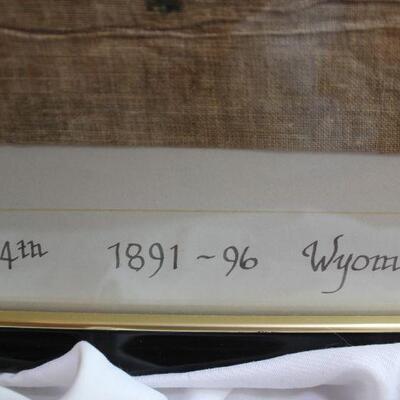 4th 1891 ~ 96 Wyom